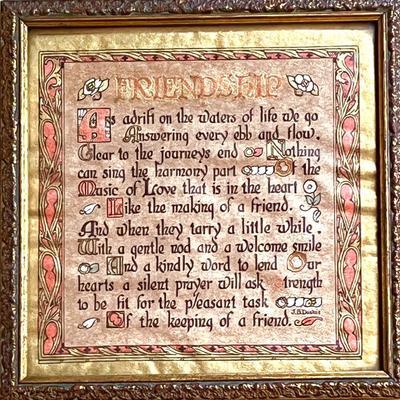 FRIENDSHIP
As adrift on the waters of life we go
Answering every ebb and flow,
Clear to the journeys end Nothing
can sing the harmony part Of the
Music of Love that is in the heart
Like the making of a friend.
And when they tarry a little while,
With a gentle nod and a welcome smile
And a kindly word to lend Our
hearts a silent prayer will ask Strength
to be fit for the pleasant task
Of the keeping of a friend.